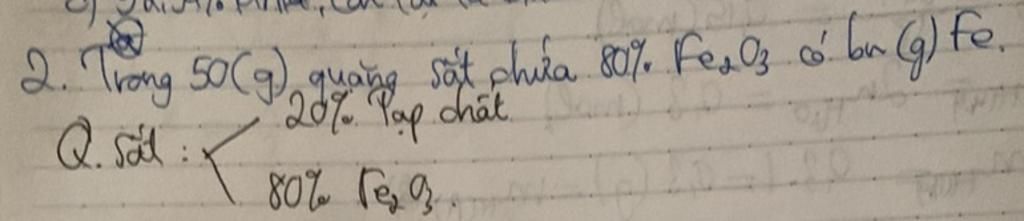 2. Trong 50(g) quặng sắt chứa 80% Fe₂O₃ có bn (g) Fe.
20% Tạp chất
Q. Sắt :
80% Fe₂O₃.